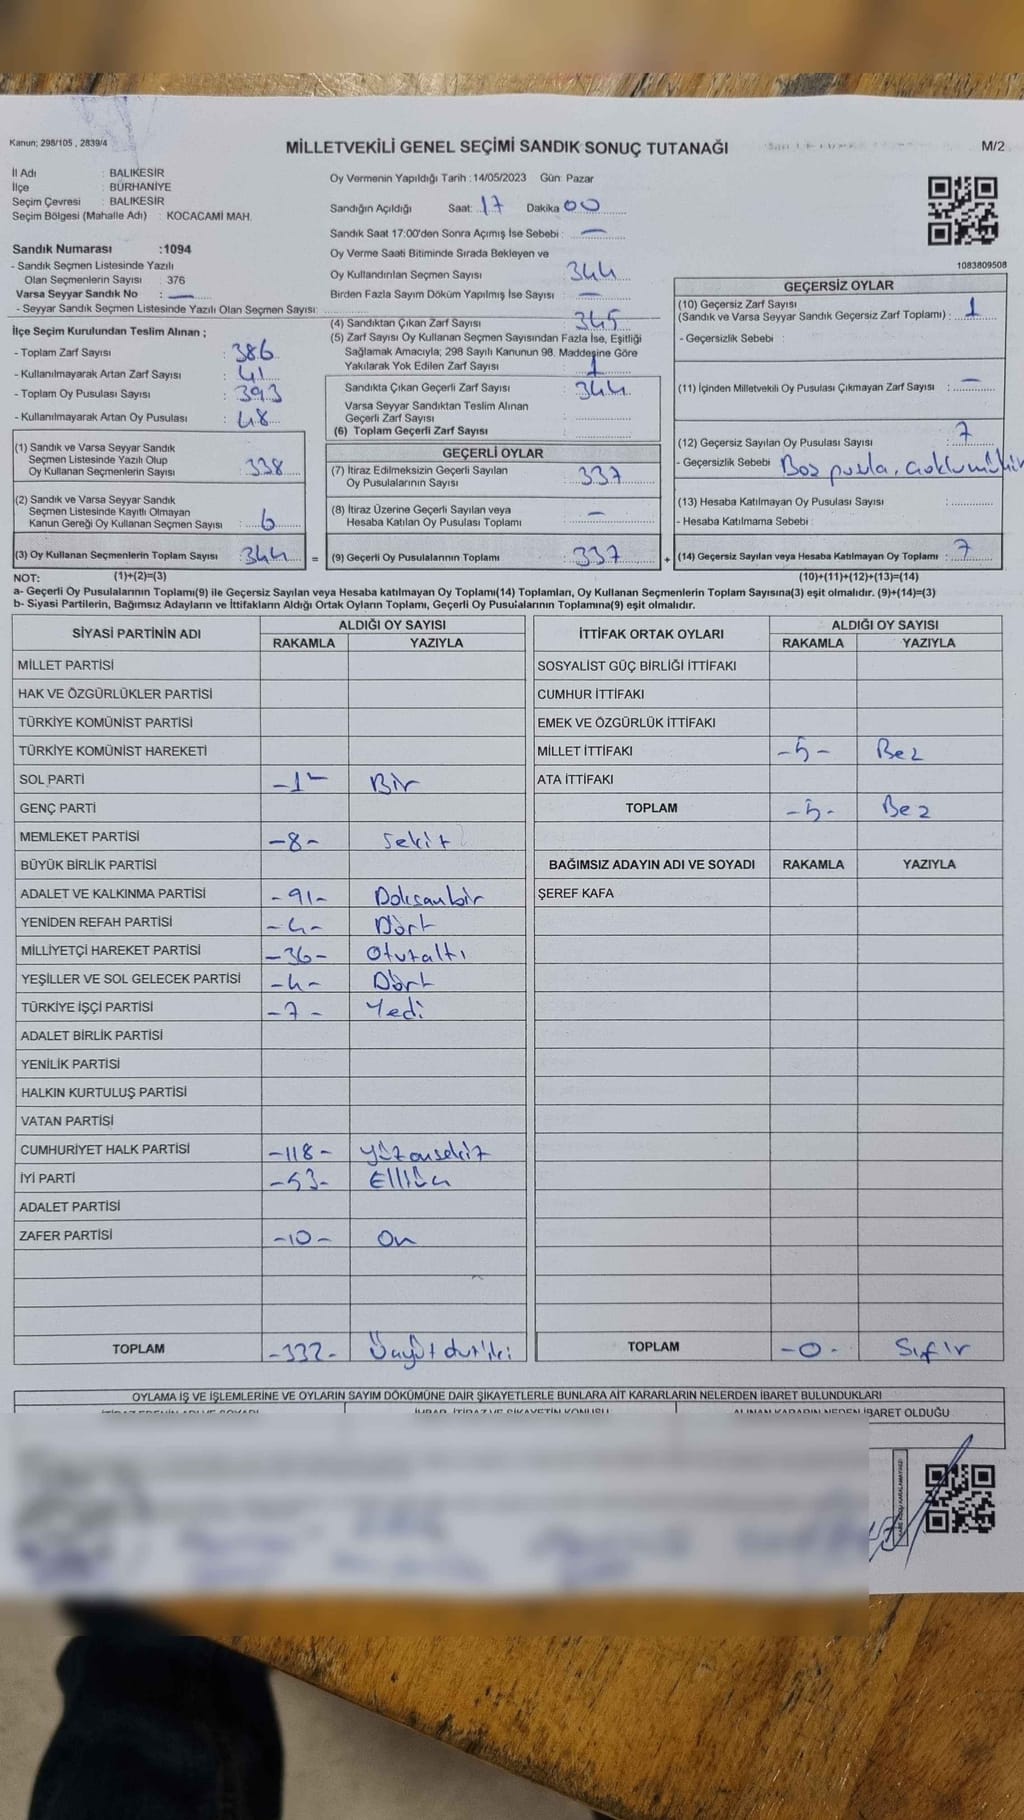 Kanun; 298/105 , 2839/4
MİLLETVEKİLİ GENEL SEÇİMİ SANDIK SONUÇ TUTANAĞI
M/2
İl Adı : BALIKESİR
İlçe : BURHANİYE
Seçim Çevresi : BALIKESİR
Seçim Bölgesi (Mahalle Adı) : KOCACAMİ MAH.
Sandık Numarası :1094
- Sandık Seçmen Listesinde Yazılı
Olan Seçmenlerin Sayısı : 376
Varsa Seyyar Sandık No : —
- Seyyar Sandık Seçmen Listesinde Yazılı Olan Seçmen Sayısı:
Oy Vermenin Yapıldığı Tarih :14/05/2023 Gün: Pazar
Sandığın Açıldığı Saat: 17 Dakika 00
Sandık Saat 17:00'den Sonra Açımış İse Sebebi : —
Oy Verme Saati Bitiminde Sırada Bekleyen ve
Oy Kullandırılan Seçmen Sayısı 344
Birden Fazla Sayım Döküm Yapılmış İse Sayısı : —
1083809508
İlçe Seçim Kurulundan Teslim Alınan ;
- Toplam Zarf Sayısı : 386
- Kullanılmayarak Artan Zarf Sayısı : 41
- Toplam Oy Pusulası Sayısı : 393
- Kullanılmayarak Artan Oy Pusulası : 48
(1) Sandık ve Varsa Seyyar Sandık
Seçmen Listesinde Yazılı Olup
Oy Kullanan Seçmenlerin Sayısı : 338
(2) Sandık ve Varsa Seyyar Sandık
Seçmen Listesinde Kayıtlı Olmayan
Kanun Gereği Oy Kullanan Seçmen Sayısı : 6
(3) Oy Kullanan Seçmenlerin Toplam Sayısı : 344 =
(4) Sandıktan Çıkan Zarf Sayısı : 345
(5) Zarf Sayısı Oy Kullanan Seçmen Sayısından Fazla İse, Eşitliği
Sağlamak Amacıyla; 298 Sayılı Kanunun 98. Maddesine Göre
Yakılarak Yok Edilen Zarf Sayısı : 1
Sandıkta Çıkan Geçerli Zarf Sayısı : 344
Varsa Seyyar Sandıktan Teslim Alınan
Geçerli Zarf Sayısı :
(6) Toplam Geçerli Zarf Sayısı :
GEÇERLİ OYLAR
(7) İtiraz Edilmeksizin Geçerli Sayılan
Oy Pusulalarının Sayısı : 337
(8) İtiraz Üzerine Geçerli Sayılan veya
Hesaba Katılan Oy Pusulası Toplamı : —
(9) Geçerli Oy Pusulalarının Toplamı : 337 +
GEÇERSİZ OYLAR
(10) Geçersiz Zarf Sayısı
(Sandık ve Varsa Seyyar Sandık Geçersiz Zarf Toplamı) : 1
- Geçersizlik Sebebi :
(11) İçinden Milletvekili Oy Pusulası Çıkmayan Zarf Sayısı : —
(12) Geçersiz Sayılan Oy Pusulası Sayısı : 7
- Geçersizlik Sebebi Boş pusla,
(13) Hesaba Katılmayan Oy Pusulası Sayısı :
- Hesaba Katılmama Sebebi :
(14) Geçersiz Sayılan veya Hesaba Katılmayan Oy Toplamı : 7
NOT: (1)+(2)=(3) (10)+(11)+(12)+(13)=(14)
a- Geçerli Oy Pusulalarının Toplamı(9) ile Geçersiz Sayılan veya Hesaba katılmayan Oy Toplamı(14) Toplamları, Oy Kullanan Seçmenlerin Toplam Sayısına(3) eşit olmalıdır. (9)+(14)=(3)
b- Siyasi Partilerin, Bağımsız Adayların ve İttifakların Aldığı Ortak Oyların Toplamı, Geçerli Oy Pusulalarının Toplamına(9) eşit olmalıdır.
SİYASİ PARTİNİN ADI ALDIĞI OY SAYISI
RAKAMLA YAZIYLA
MİLLET PARTİSİ
HAK VE ÖZGÜRLÜKLER PARTİSİ
TÜRKİYE KOMÜNİST PARTİSİ
TÜRKİYE KOMÜNİST HAREKETİ
SOL PARTİ -1- Bir
GENÇ PARTİ
MEMLEKET PARTİSİ -8- Sekiz
BÜYÜK BİRLİK PARTİSİ
ADALET VE KALKINMA PARTİSİ -91- Doksanbir
YENİDEN REFAH PARTİSİ -4- Dört
MİLLİYETÇİ HAREKET PARTİSİ -36- Otuzaltı
YEŞİLLER VE SOL GELECEK PARTİSİ -4- Dört
TÜRKİYE İŞÇİ PARTİSİ -7- Yedi
ADALET BİRLİK PARTİSİ
YENİLİK PARTİSİ
HALKIN KURTULUŞ PARTİSİ
VATAN PARTİSİ
CUMHURİYET HALK PARTİSİ -118- Yüzonsekiz
İYİ PARTİ -53- Elliüç
ADALET PARTİSİ
ZAFER PARTİSİ -10- On
TOPLAM -332- Üçyüzotuziki
İTTİFAK ORTAK OYLARI ALDIĞI OY SAYISI
RAKAMLA YAZIYLA
SOSYALİST GÜÇ BİRLİĞİ İTTİFAKI
CUMHUR İTTİFAKI
EMEK VE ÖZGÜRLÜK İTTİFAKI
MİLLET İTTİFAKI -5- Beş
ATA İTTİFAKI
TOPLAM -5- Beş
BAĞIMSIZ ADAYIN ADI VE SOYADI RAKAMLA YAZIYLA
ŞEREF KAFA
TOPLAM -0- Sıfır
OYLAMA İŞ VE İŞLEMLERİNE VE OYLARIN SAYIM DÖKÜMÜNE DAİR ŞİKAYETLERLE BUNLARA AİT KARARLARIN NELERDEN İBARET BULUNDUKLARI
ALINAN KARARIN NEDEN İBARET OLDUĞU